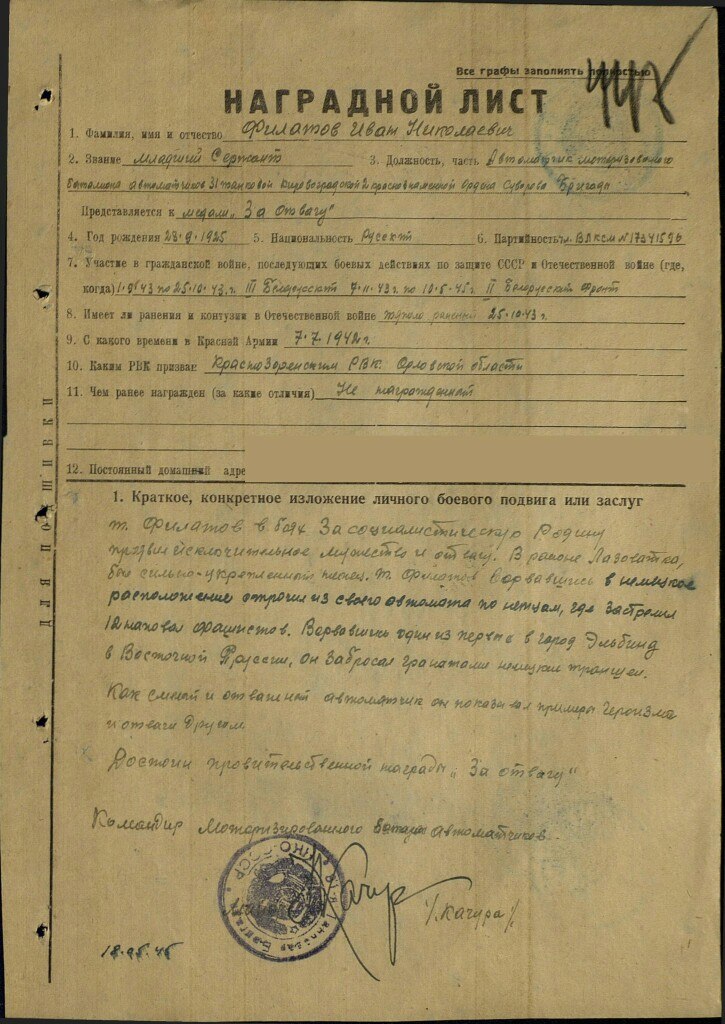 Все графы заполнять полностью
НАГРАДНОЙ ЛИСТ
1. Фамилия, имя и отчество Филатов Иван Николаевич
2. Звание младший Сержант 3. Должность, часть Автоматчик моторизованного
батальона автоматчиков 31 танковой Кировоградской Краснознаменной Ордена Суворова Бригады
Представляется к медали „За отвагу"
4. Год рождения 23.9.1925 5. Национальность Русский 6. Партийность чл. ВЛКСМ №
7. Участие в гражданской войне, последующих боевых действиях по защите СССР и Отечественной войне (где,
когда) по 25.10.43 г. III Белорусский 7.11.43 г. по 10.5.45 г. II Белорусский Фронт
8. Имеет ли ранения и контузии в Отечественной войне тяжело раненый 25.10.43 г.
9. С какого времени в Красной Армии 7.7.1942 г.
10. Каким РВК призван Краснозоренским РВК Орловской области
11. Чем ранее награжден (за какие отличия) Не награжденный
12. Постоянный домашний адре
1. Краткое, конкретное изложение личного боевого подвига или заслуг
т. Филатов в боях За социалистическую Родину
проявил исключительное мужество и отвагу. В районе Лазоватка,
был сильно-укрепленный т. Филатов ворвавшись в немецкое
расположение строчил из своего автомата по немцам, где застрелил
12 фашистов. Ворвавшись один из первых в город Эльбинд
в Восточной Пруссии, он забросал гранатами немецкие траншеи.
Как смелый и отважный автоматчик он показывал примеры героизма
и отваги другим.
Достоин правительственной награды „За отвагу"
Командир Моторизированного автоматчиков
/Качура/
18.05.45
ДЛЯ ПОДШИВКИ